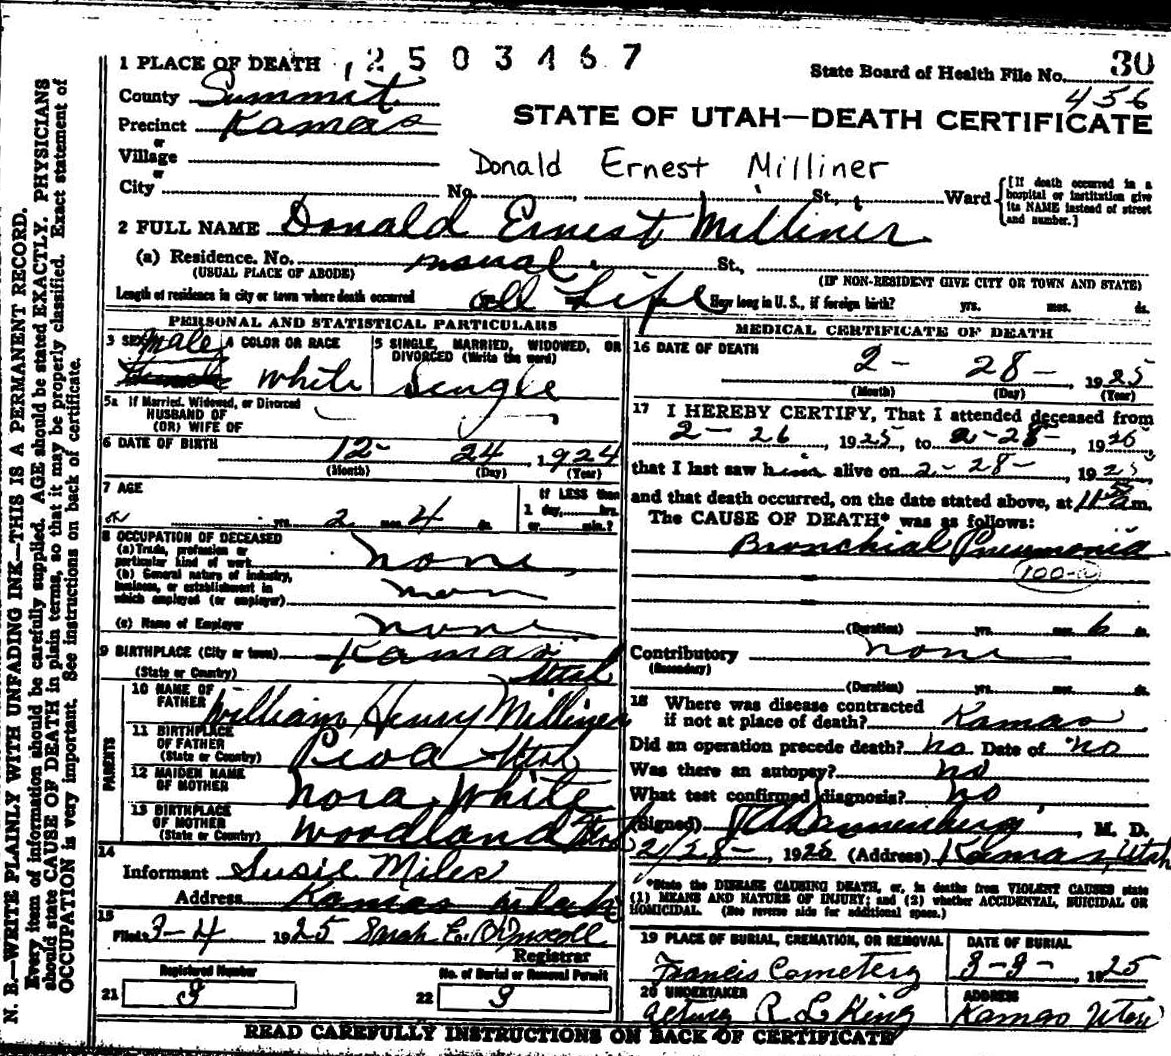 1 PLACE OF DEATH 2503467
State Board of Health File No. 30
456
County Summit
Precinct Kamas
STATE OF UTAH—DEATH CERTIFICATE
or
Village
Donald Ernest Milliner
or
City No. St., Ward [If death occurred in a hospital or institution give its NAME instead of street and number.]
2 FULL NAME Donald Ernest Milliner
(a) Residence. No. usual St.,
(USUAL PLACE OF ABODE) (IF NON-RESIDENT GIVE CITY OR TOWN AND STATE)
Length of residence in city or town where death occurred all Life How long in U. S., if foreign birth? yrs. mos. ds.
PERSONAL AND STATISTICAL PARTICULARS
3 SEX Male
4 COLOR OR RACE White
5 SINGLE, MARRIED, WIDOWED, OR DIVORCED (Write the word) Single
5a If Married, Widowed, or Divorced
HUSBAND OF
(OR) WIFE OF
6 DATE OF BIRTH 12- 24 1924
(Month) (Day) (Year)
7 AGE
yrs. 2 mos. 4 ds.
If LESS than
1 day, hrs.
or min.?
8 OCCUPATION OF DECEASED
(a) Trade, profession or
particular kind of work none
(b) General nature of industry,
business, or establishment in
which employed (or employer)
(c) Name of Employer none
9 BIRTHPLACE (City or town) Kamas
(State or Country) Utah
PARENTS
10 NAME OF
FATHER William Henry Milliner
11 BIRTHPLACE
OF FATHER
(State or Country) Utah
12 MAIDEN NAME
OF MOTHER Nora White
13 BIRTHPLACE
OF MOTHER
(State or Country) Woodland Utah
14
Informant Susie Miles
Address Kamas Utah
15
Filed 3-4 1925 Sarah E. O'Driscoll
Registrar
Registered Number
21 3
No. of Burial or Removal Permit
22 3
MEDICAL CERTIFICATE OF DEATH
16 DATE OF DEATH
2- 28- , 1925
(Month) (Day) (Year)
17 I HEREBY CERTIFY, That I attended deceased from
2-26, 1925, to 2-28- 1925,
that I last saw him alive on 2-28- 1925,
and that death occurred, on the date stated above, at m.
The CAUSE OF DEATH* was as follows:
Bronchial Pneumonia
100-a
(Duration) yrs. mos. 6 ds.
Contributory none
(Secondary)
(Duration) yrs. mos. ds.
18 Where was disease contracted
if not at place of death? Kamas
Did an operation precede death? no Date of no
Was there an autopsy? no
What test confirmed diagnosis? no
(Signed) , M. D.
2/28-, 1925 (Address) Kamas, Utah
*State the DISEASE CAUSING DEATH, or, in deaths from VIOLENT CAUSES state
(1) MEANS AND NATURE OF INJURY; and (2) whether ACCIDENTAL, SUICIDAL OR
HOMICIDAL. (See reverse side for additional space.)
19 PLACE OF BURIAL, CREMATION, OR REMOVAL
Francis Cemetery
DATE OF BURIAL
3-3- 1925
20 UNDERTAKER
King
ADDRESS
Kamas Utah
READ CAREFULLY INSTRUCTIONS ON BACK OF CERTIFICATE
N. B.—WRITE PLAINLY WITH UNFADING INK—THIS IS A PERMANENT RECORD.
Every item of information should be carefully supplied. AGE should be stated EXACTLY. PHYSICIANS
should state CAUSE OF DEATH in plain terms, so that it may be properly classified. Exact statement of
OCCUPATION is very important. See instructions on back of certificate.